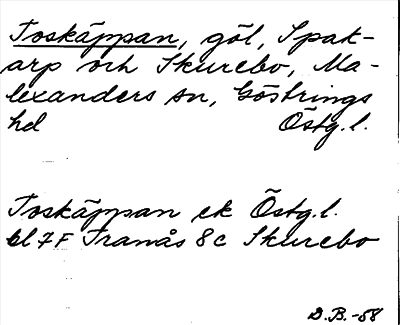 Toskäppan, göl, Spak-
arp och Skurebo, Ma-
lexanders sn, Göstrings
hd Östg.l.
Toskäppan ek Östg.l.
bl 7F Tranås 8c Skurebo
D.B.-58